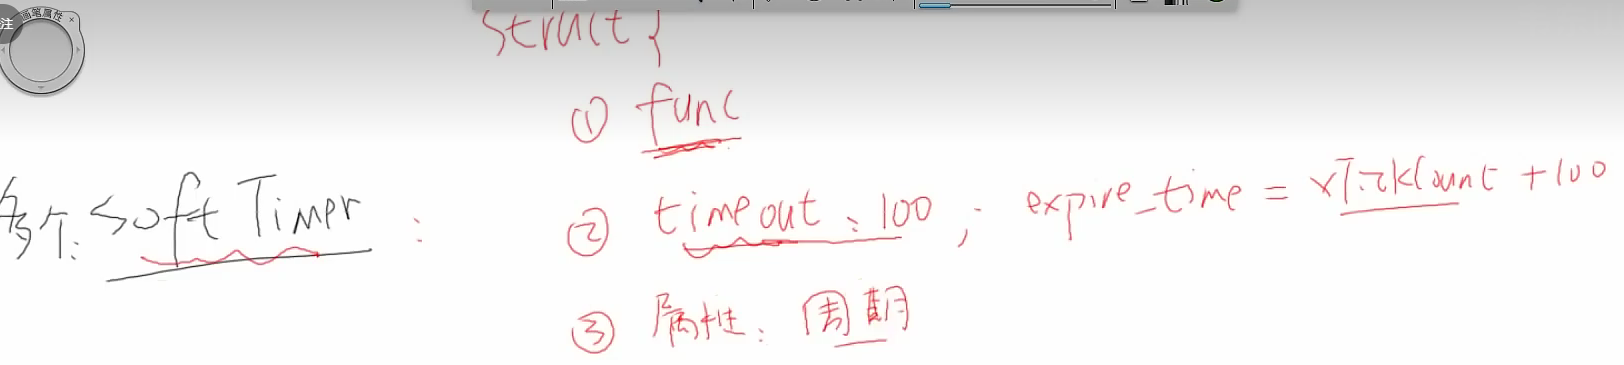 画笔属性
注
struct {
① func
多个: Soft Timer :
② timeout: 100 ; expire_time = xTickCount + 100
③ 属性: 周期